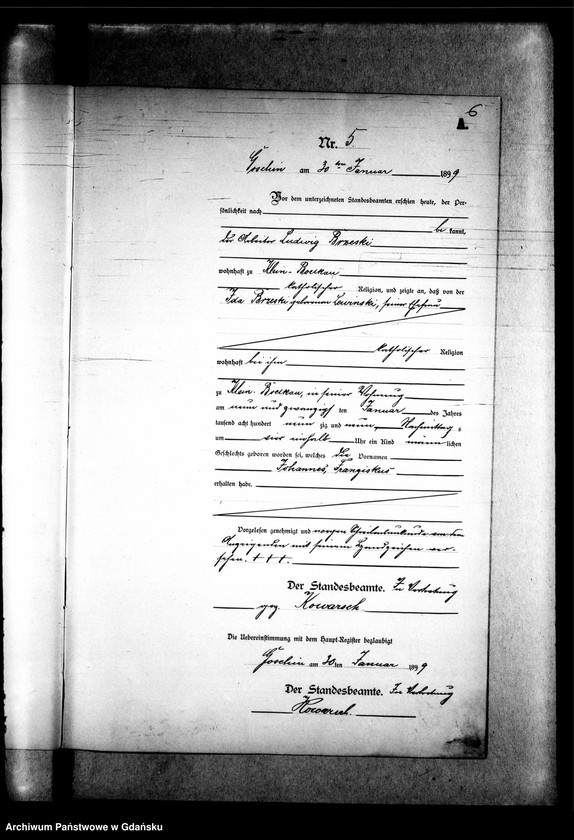 6
A.
Nr. 5
Goschin am 30 ten Januar 1899
Vor dem unterzeichneten Standesbeamten erschien heute, der Per-
sönlichkeit nach
be kannt,
der Arbeiter Ludwig Brzeski
wohnhaft zu Klein-Boelkau
katholischer Religion, und zeigte an, daß von der
Ida Brzeski geborenen Lewinski, seiner Ehefrau
katholischer Religion
wohnhaft bei ihm
zu Klein-Boelkau, in seiner Wohnung
am neun und zwanzigsten Januar des Jahres
tausend acht hundert neun zig und neun, Nachmittags
um vier einhalb Uhr ein Kind männ lichen
Geschlechts geboren worden sei, welches die Vornamen
Johannes, Franziskus
erhalten habe.
Vorgelesen, genehmigt und wegen Schreibensunkunde von dem
Anzeigenden mit seinem Handzeichen ver-
sehen. + + +.
Der Standesbeamte. In Vertretung
gez. Kowarsch
Die Uebereinstimmung mit dem Haupt-Register beglaubigt
Goschin am 30ten Januar 1899
Der Standesbeamte. In Vertretung
Kowarsch.
Archiwum Państwowe w Gdańsku